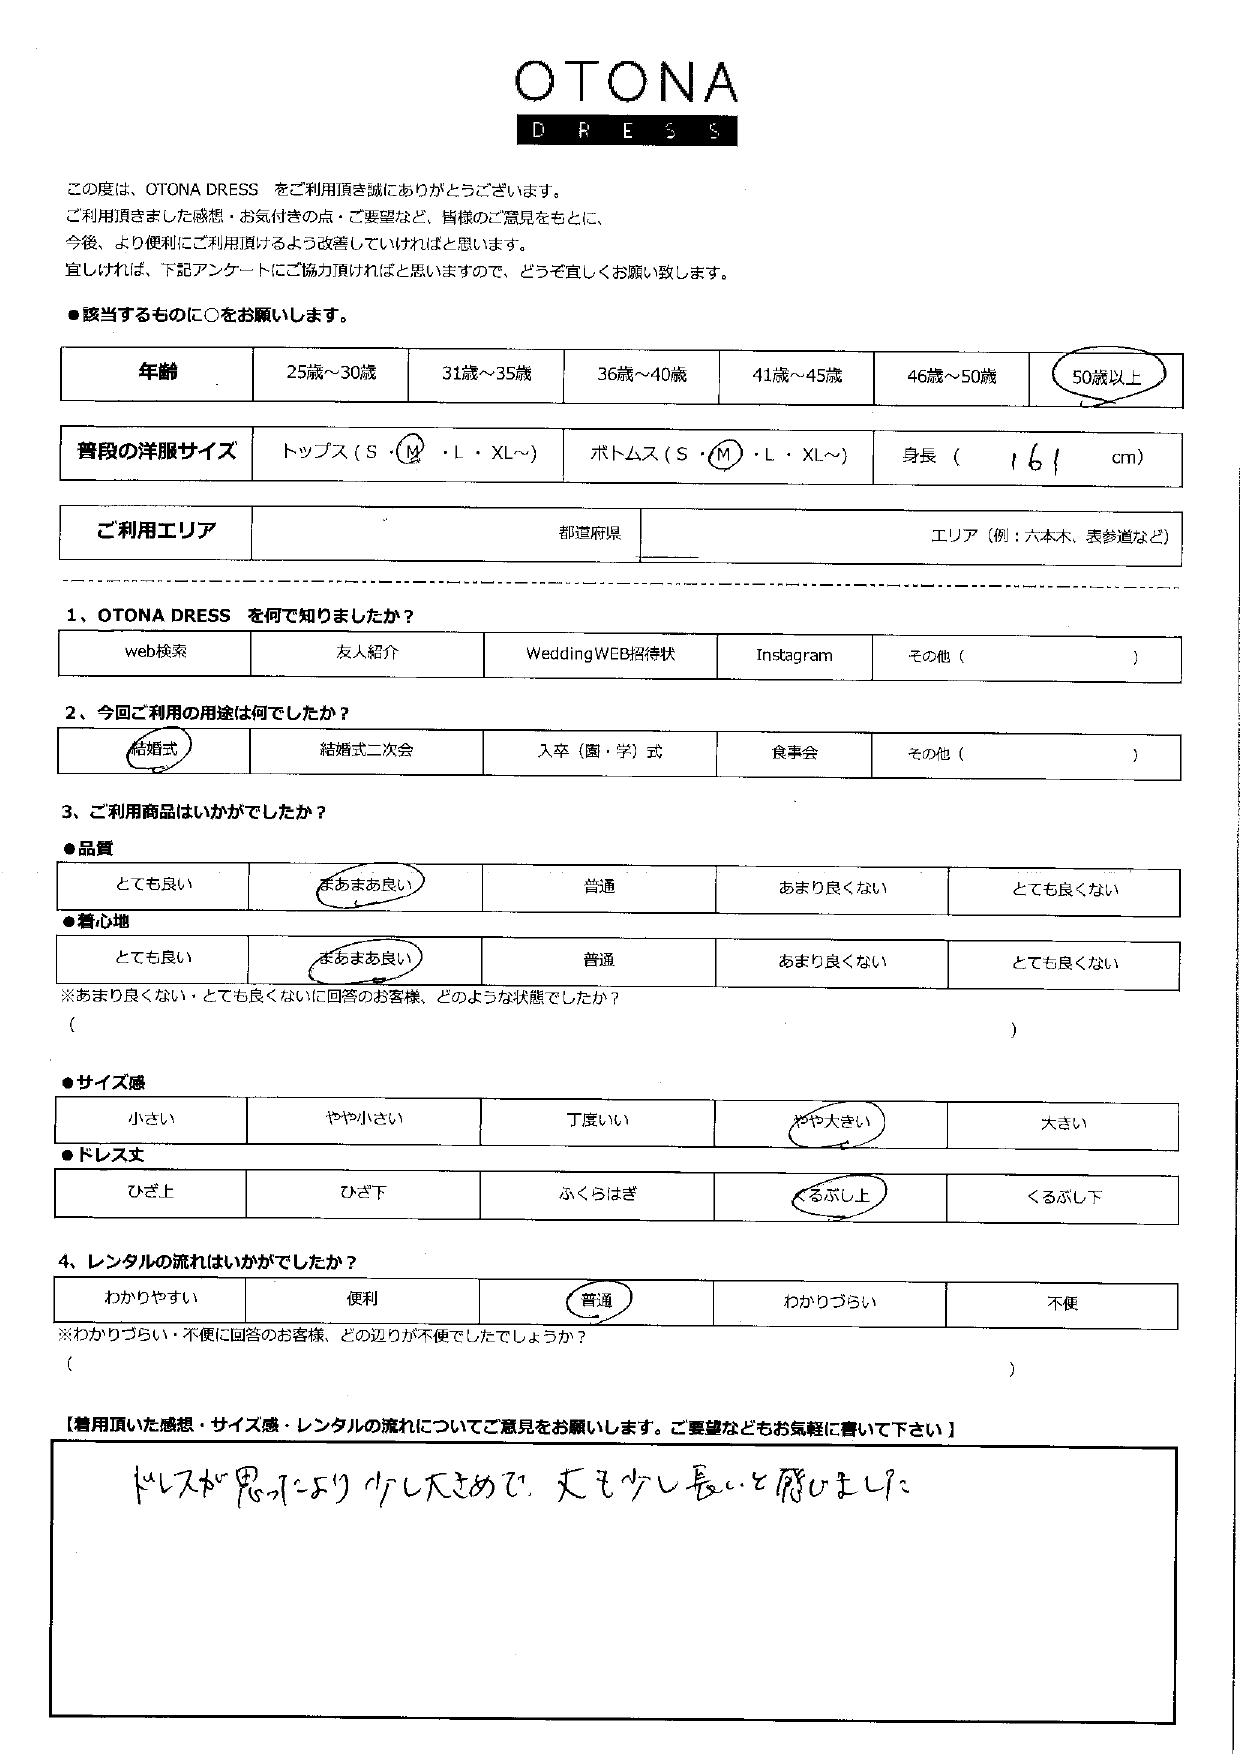 OTONA
DRESS
この度は、OTONA DRESS　をご利用頂き誠にありがとうございます。
ご利用頂きました感想・お気付きの点・ご要望など、皆様のご意見をもとに、
今後、より便利にご利用頂けるよう改善していければと思います。
宜しければ、下記アンケートにご協力頂ければと思いますので、どうぞ宜しくお願い致します。
●該当するものに○をお願いします。
年齢 25歳～30歳 31歳～35歳 36歳～40歳 41歳～45歳 46歳～50歳 50歳以上
普段の洋服サイズ トップス ( S ・ M ・ L ・ XL～) ボトムス ( S ・ M ・ L ・ XL～) 身長 ( 161 cm)
ご利用エリア 都道府県 エリア（例：六本木、表参道など）
1、OTONA DRESS　を何で知りましたか？
web検索 友人紹介 WeddingWEB招待状 Instagram その他（ ）
2、今回ご利用の用途は何でしたか？
結婚式 結婚式二次会 入卒（園・学）式 食事会 その他（ ）
3、ご利用商品はいかがでしたか？
●品質
とても良い まあまあ良い 普通 あまり良くない とても良くない
●着心地
とても良い まあまあ良い 普通 あまり良くない とても良くない
※あまり良くない・とても良くないに回答のお客様、どのような状態でしたか？
（ ）
●サイズ感
小さい やや小さい 丁度いい やや大きい 大きい
●ドレス丈
ひざ上 ひざ下 ふくらはぎ くるぶし上 くるぶし下
4、レンタルの流れはいかがでしたか？
わかりやすい 便利 普通 わかりづらい 不便
※わかりづらい・不便に回答のお客様、どの辺りが不便でしたでしょうか？
（ ）
【着用頂いた感想・サイズ感・レンタルの流れについてご意見をお願いします。ご要望などもお気軽に書いて下さい】
ドレスが思ったより少し大きめで、丈も少し長いと感じました